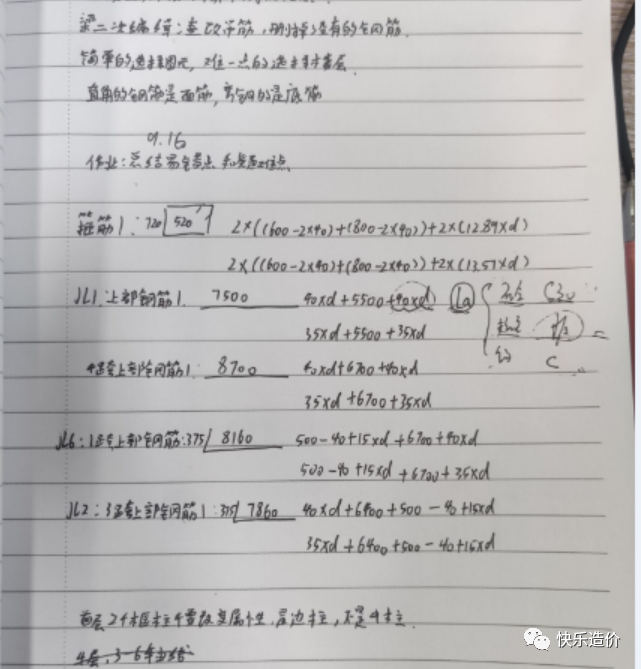 梁二次编辑:查改吊筋,删掉没有的钢筋.
简单的选择图元,难一点的选择本层
直角的钢筋是面筋,弯钩的是底筋
9.16
作业:总结易错点和疑难点.
箍筋1:720 520 2×((600-2×40)+(800-2×40))+2×(12.89×d)
2×((600-2×40)+(800-2×40))+2×(13.57×d)
JL1.上部钢筋1. 7500 40×d+5500+40×d la
35×d+5500+35×d C30
4跨上部钢筋1: 8700 40×d+6700+40×d C
35×d+6700+35×d
JL6:1跨上部钢筋:375 8160 500-40+15×d+6700+40×d
500-40+15×d+6700+35×d
JL2:3跨上部钢筋1:375 7860 40×d+6400+500-40+15×d
35×d+6400+500-40+15×d
首层2个框柱需改变属性,是边柱,不是中柱.
快乐造价